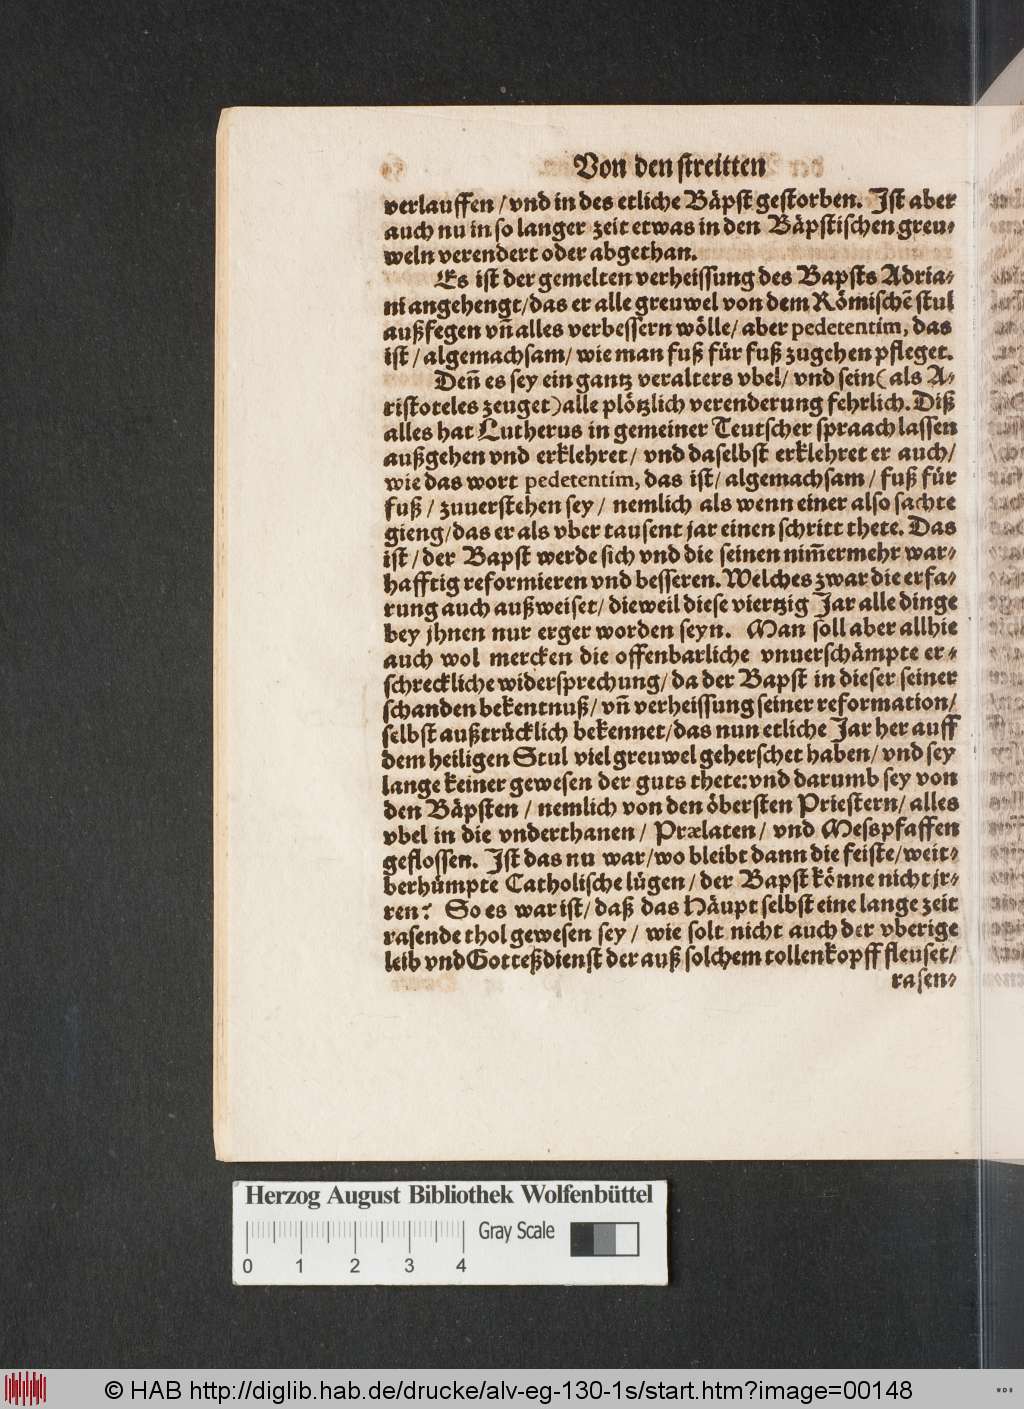 Von den streitten
verlauffen / vnd in des etliche Bäpst gestorben. Ist aber
auch nu in so langer zeit etwas in den Bäpstischen greu-
weln verendert oder abgethan.
Es ist der gemelten verheissung des Bapsts Adria-
ni angehengt/das er alle greuwel von dem Römischē stul
außfegen vñ alles verbessern wölle/ aber pedetentim, das
ist / algemachsam/ wie man fuß für fuß zugehen pfleget.
Deñ es sey ein gantz veralters vbel/ vnd sein (als A-
ristoteles zeuget) alle plötzlich verenderung fehrlich. Diß
alles hat Lutherus in gemeiner Teutscher spraach lassen
außgehen vnd erklehret/ vnd daselbst erklehret er auch/
wie das wort pedetentim, das ist/ algemachsam / fuß für
fuß / zuuerstehen sey / nemlich als wenn einer also sachte
gieng/das er als vber tausent jar einen schritt thete. Das
ist / der Bapst werde sich vnd die seinen nim̃ermehr war-
hafftig reformieren vnd besseren. Welches zwar die erfa-
rung auch außweiset/ dieweil diese viertzig Jar alle dinge
bey jhnen nur erger worden seyn. Man soll aber allhie
auch wol mercken die offenbarliche vnuerschämpte er-
schreckliche widersprechung/ da der Bapst in dieser seiner
schanden bekentnuß/ vñ verheissung seiner reformation/
selbst außtrücklich bekennet/das nun etliche Jar her auff
dem heiligen Stul viel greuwel geherschet haben/ vnd sey
lange keiner gewesen der guts thete: vnd darumb sey von
den Bäpsten / nemlich von den öbersten Priestern/ alles
vbel in die vnderthanen / Prælaten/ vnd Messpfaffen
geflossen. Ist das nu war/wo bleibt dann die feiste/weit-
berhümpte Catholische lügen / der Bapst könne nicht jr-
ren? So es war ist/ daß das Häupt selbst eine lange zeit
rasende thol gewesen sey / wie solt nicht auch der vberige
leib vnd Gotteßdienst der auß solchem tollenkopff fleuset/
rasen-
Herzog August Bibliothek Wolfenbüttel
Gray Scale
0 1 2 3 4
© HAB http://diglib.hab.de/drucke/alv-eg-130-1s/start.htm?image=00148